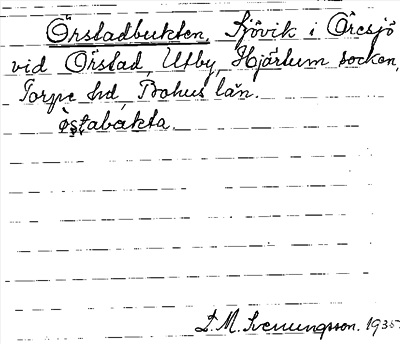 Örstadbukten, Sjövik i Öresjö
vid Örstad, Utby, Hjärtum socken,
Torpe hd, Bohus län.
östabàkta.
L. M. Svenungsson. 1935.